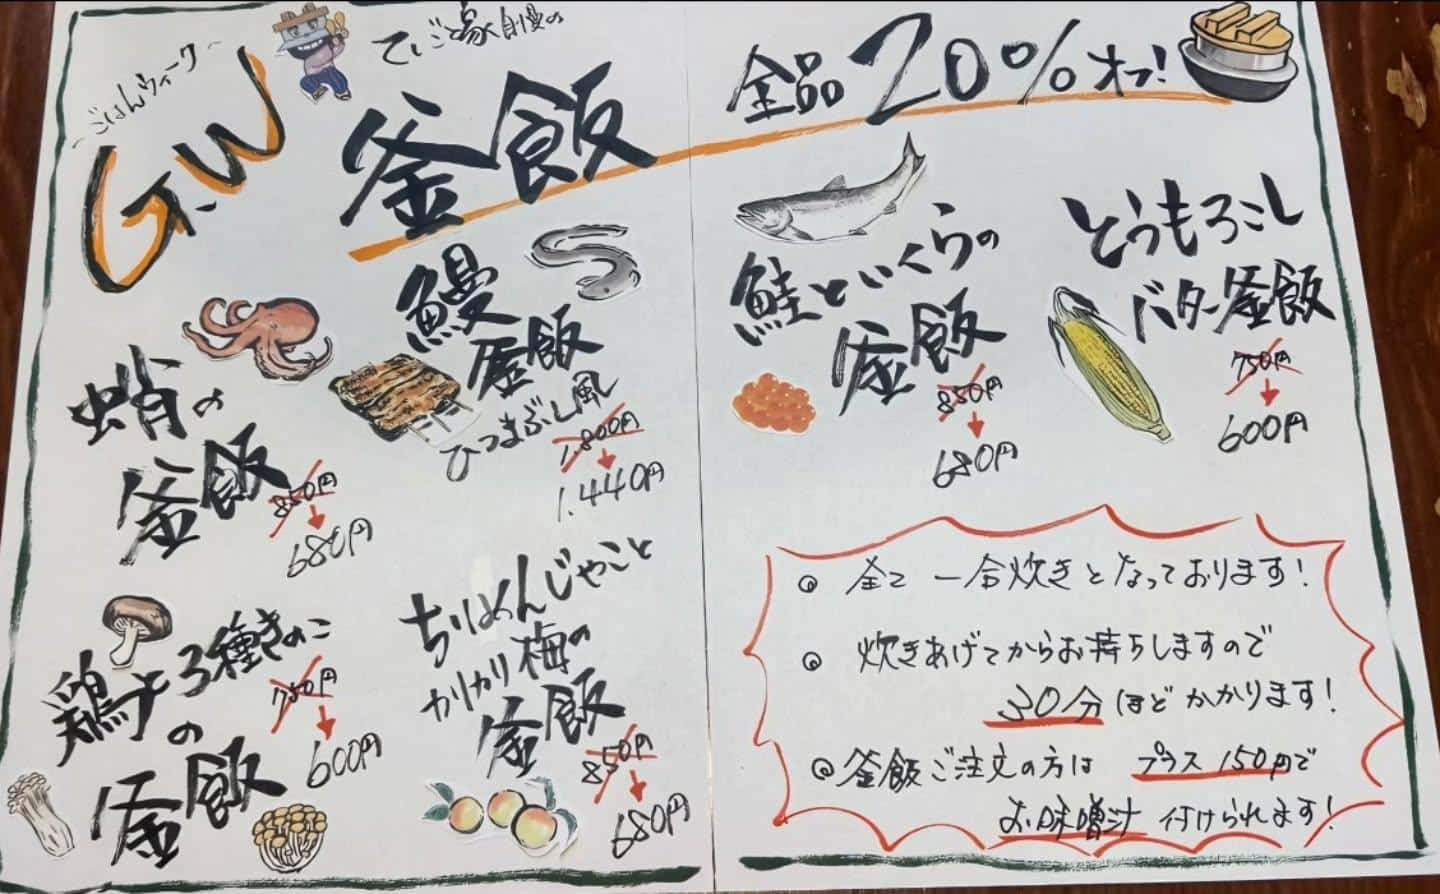 ごはんウィーク
G.W
てぃご家自慢の
釜飯
全品20%オフ!
蛸の
釜飯
850円
680円
鰻
釜飯
ひつまぶし風
1.800円
1.440円
鶏と3種きのこ
の
釜飯
750円
600円
ちりめんじゃこと
カリカリ梅の
釜飯
850円
680円
鮭といくらの
釜飯
850円
680円
とうもろこし
バター釜飯
750円
600円
◎ 全て一合炊きとなっております!
◎ 炊きあげてからお持ちしますので
30分ほどかかります!
◎ 釜飯ご注文の方はプラス150円で
お味噌汁付けられます!